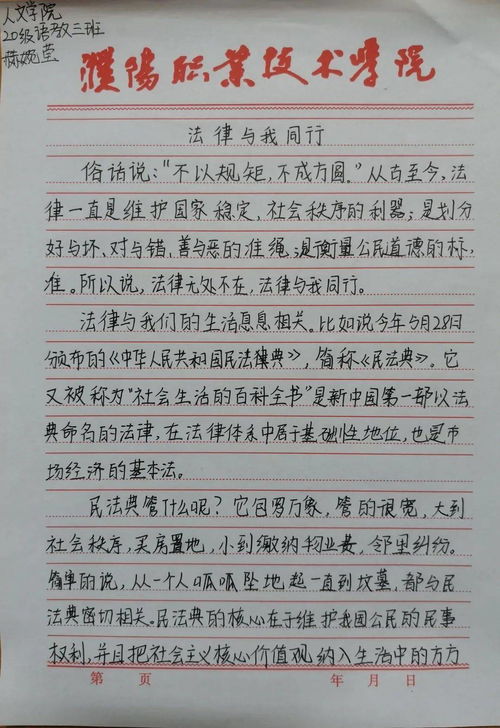 人文学院
20级语教三班
濮阳职业技术学院
法律与我同行
俗话说："不以规矩,不成方圆。"从古至今,法
律一直是维护国家稳定,社会秩序的利器;是划分
好与坏、对与错、善与恶的准绳,是衡量公民道德的标
准。所以说,法律无处不在,法律与我同行。
法律与我们的生活息息相关。比如说今年5月28日
颁布的《中华人民共和国民法典》,简称《民法典》。它
又被称为"社会生活的百科全书"是新中国第一部以法
典命名的法律,在法律体系中居于基础性地位,也是市
场经济的基本法。
民法典管什么呢?它包罗万象,管的很宽,大到
社会秩序,买房置地,小到缴纳物业费,邻里纠纷。
简单的说,从一个人呱呱坠地起一直到坟墓,都与民
法典密切相关。民法典的核心在于维护我国公民的民事
权利,并且把社会主义核心价值观纳入生活中的方方
第 页 年 月 日